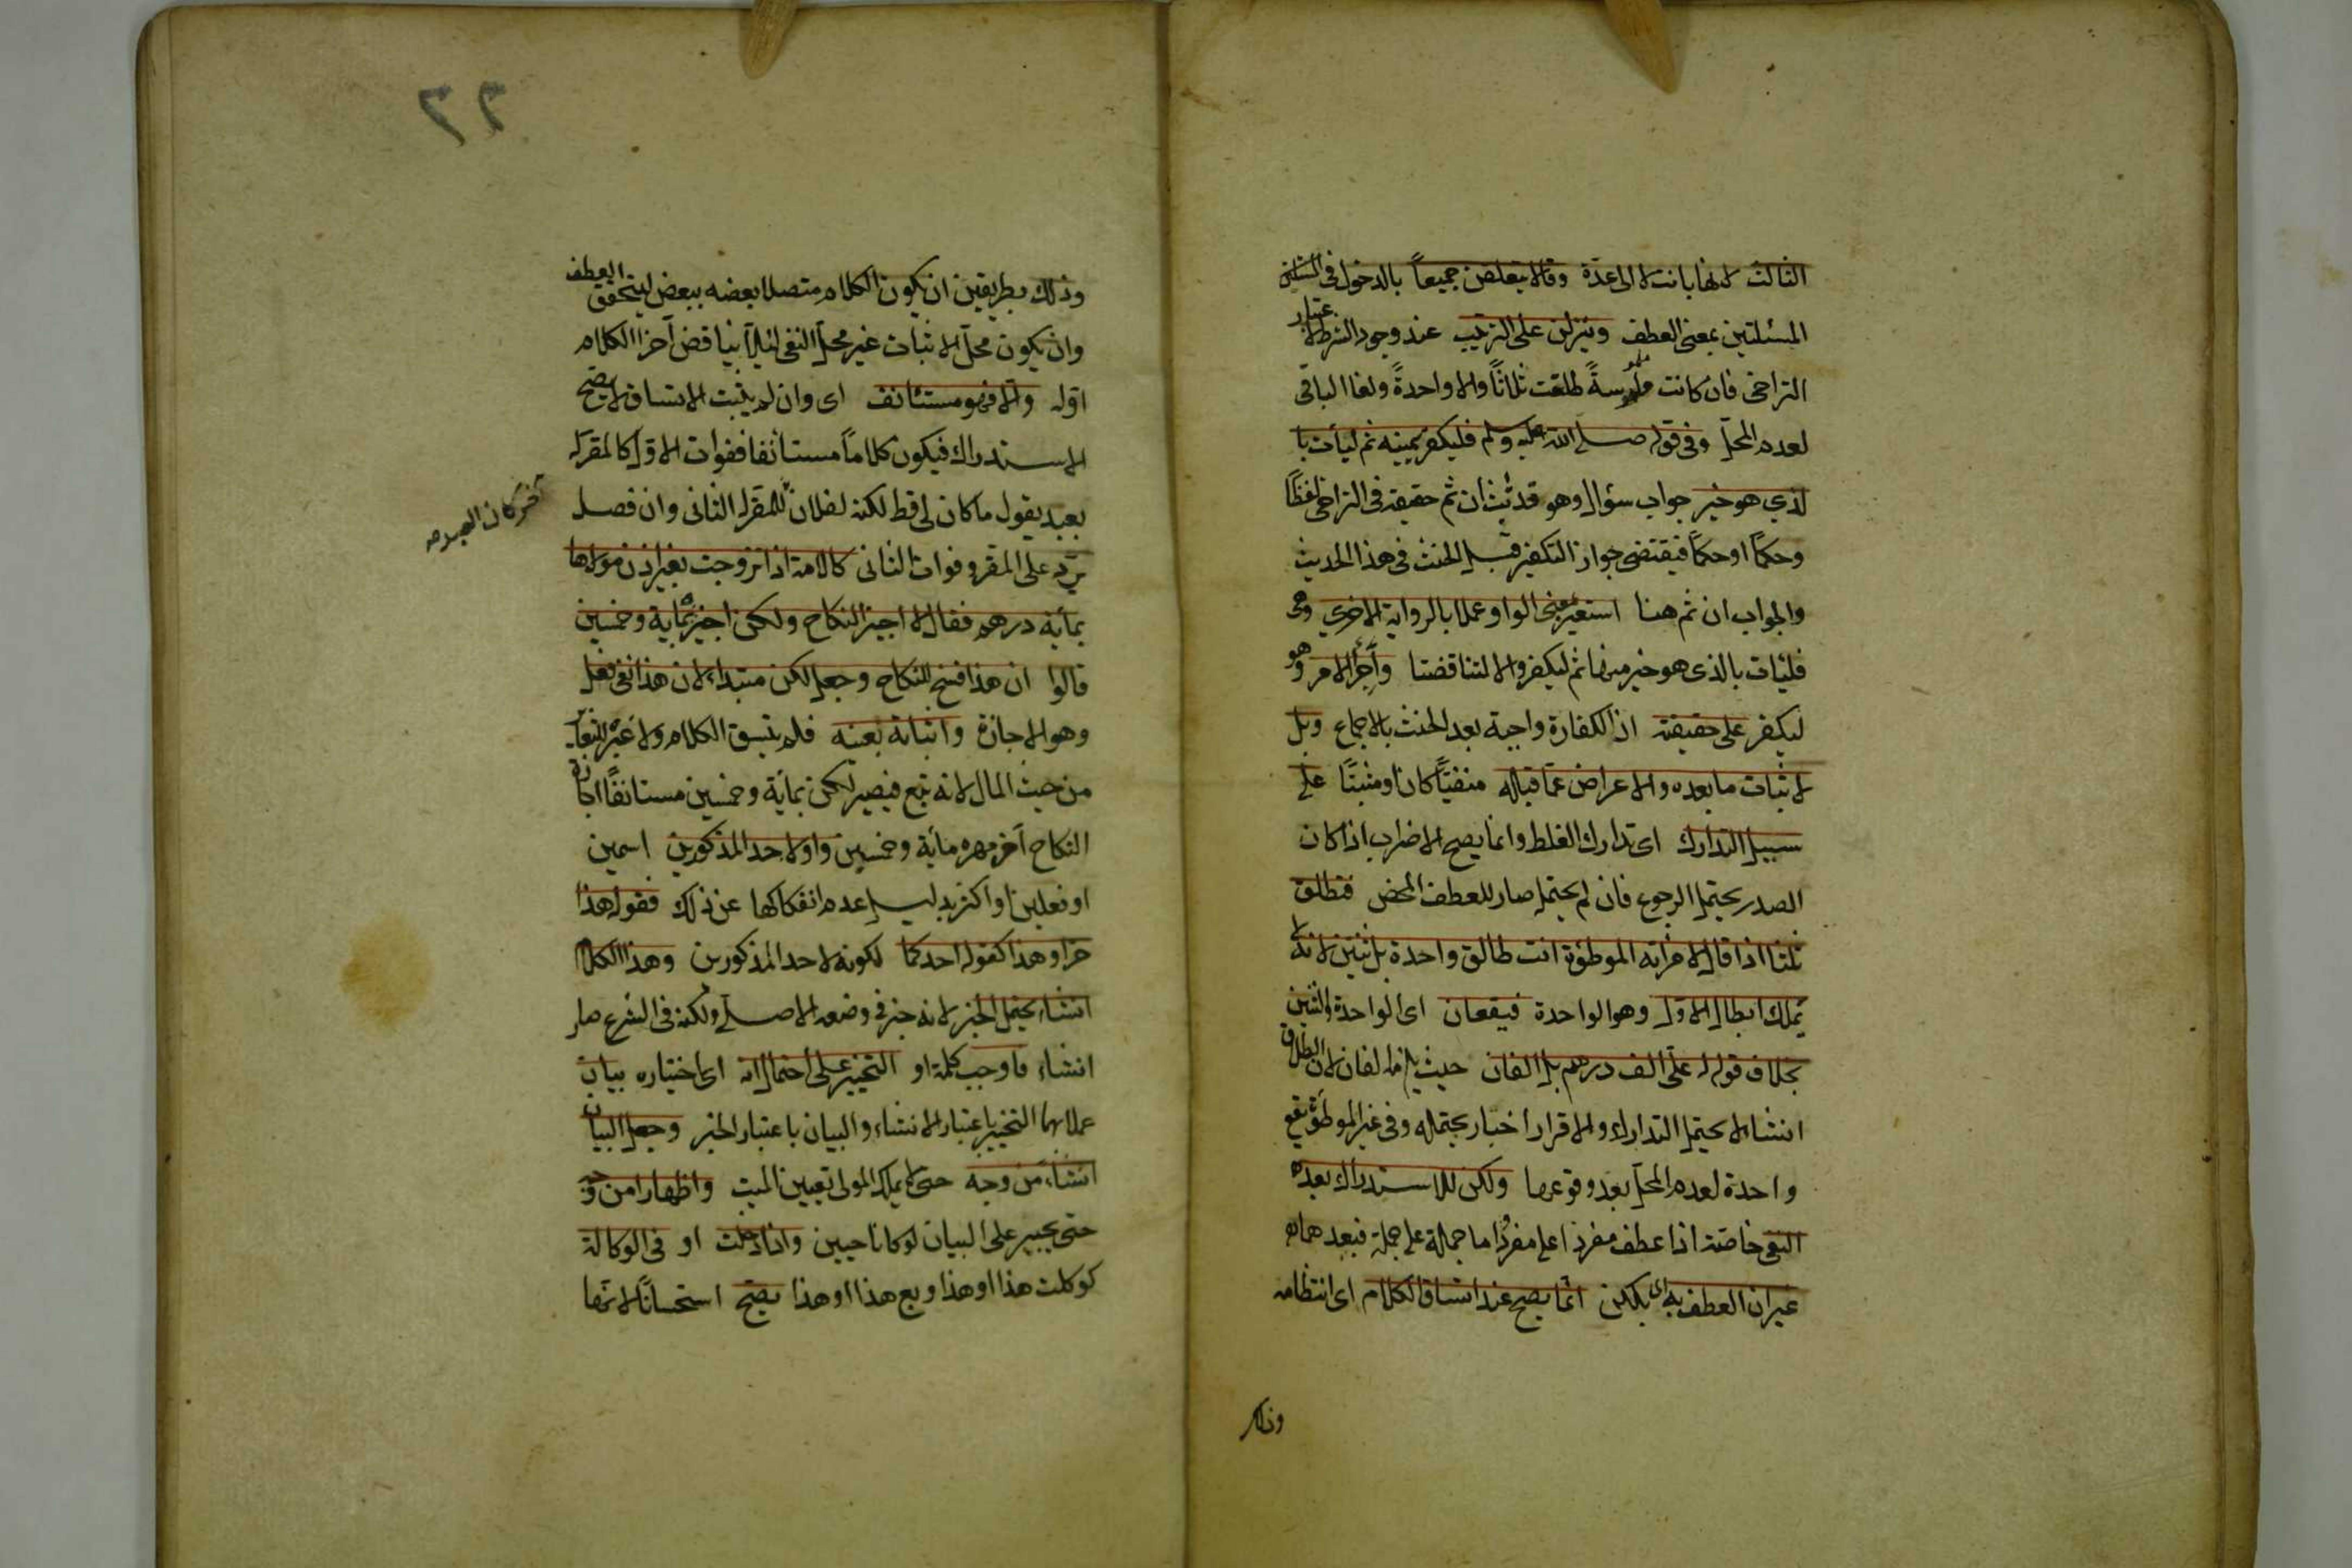 الثالث لانها بانت لا الى عدة وقالا يتعلقن جميعاً بالدخول فى
المسئلتين بمعنى العطف وينزلن على الترتيب عند وجود الشرط لاعتبار
التراخى فان كانت ملموسةً طلقت ثلاثاً والا واحدةً ولغا الباقى
لعدم المحل وفى قوله صلى الله عليه وسلم فليكفر يمينه ثم ليأت با
لذي هو خير جواب سؤال وهو قد ثبت ان ثم حقيقة فى التراخى لفظاً
وحكماً او حكماً فيقتضى جواز التكفير قبل الحنث فى هذا الحديث
والجواب ان ثم هنا استعير بمعنى الواو عملا بالرواية الاخرى وهى
فليأت بالذى هو خير منها ثم ليكفر والا لتناقضتا وأجرأ الامر وهو
ليكفر على حقيقته اذ الكفارة واجبة بعد الحنث بالاجماع وبل
لاثبات ما بعده والاعراض عما قباله منفيّاً كان او مثبتًا على
سبيل التدارك اى تدارك الغلط وانما يصح الاضراب اذا كان
الصدر يحتمل الرجوع فان لم يحتمل صار للعطف المحض فتطلق
ثلثا اذا قال لامرأته الموطوءة انت طالق واحدة بل ثنتين لانه لا
يملك ابطال الاول وهو الواحدة فيقعان اى الواحدة والثنتين
بخلاف قوله له علىّ الف درهم بل الفان حيث يلزمه الفان لان الطلاق
انشاء لا يحتمل التدارك والاقرار اخبار يحتمله وفى غير الموطؤة يقع
واحدة لعدم المحل بعد وقوعها ولكن للاستدراك بعد
النفى خاصّة اذا عطف مفرد على مفرد اما جملة على جملة فبعدهما
غير ان العطف به اى بلكن انما يصح عند اتساق الكلام اى انتظامه
وذلك
٢٢
وذلك بطريقين ان يكون الكلام متصلا بعضه ببعض ليتحقق العطف
وان يكون محلّ الاثبات غير محل النفى لئلا يناقض آخر الكلام
اوّله والا فهو مستئانف اى وان لم يثبت الاتساق لا يصح
الاستدراك فيكون كلاماً مستانفا ففوات الاول كالمقر له
بعبد يقول ما كان لى قط لكنه لفلان للمقر له الثانى وان فصل
آخر كان العبد
يردّ على المقر وفوات الثانى كالامة اذا تزوجت بغير اذن مولاها
بمأية درهم فقال لا اجيز النكاح ولكن اجيزه بمأية وخمسين
قالوا ان هذا فسخ للنكاح وجعل لكن مبتداء لان هذا نفى فعل
وهو الاجازة واثباته بعينه فلم يتسق الكلام ولا
من حيث المال لانه تبع فيصير لكن بمأية وخمسين مستانفًا اجازة
النكاح آخر مهره مأية وخمسين واو لاحد المذكورين اسمين
او فعلين او اكثر بدليل عدم انفكاكها عن ذلك فقوله هذا
حر او هذا كقوله احدكما لكونه لاحد المذكورين وهذا الكلام
انشاء يحتمل الخبر لانه خبر فى وضعه الاصلى ولكنه فى الشرع صار
انشاء فاوجب كلمة او التخيير على احتمال انه اى اختياره بيان
عملا بهما التخيير باعتبار الانشاء والبيان باعتبار الخبر وجعل البيان
انشاء من وجه حتى لا يملك المولى تعيين الميت واظهارا من وجه
حتى يجبر على البيان لو كانا حيين واذا دخلت او فى الوكالة
كوكلت هذا او هذا وبع هذا او هذا يصح استحساناً لانها